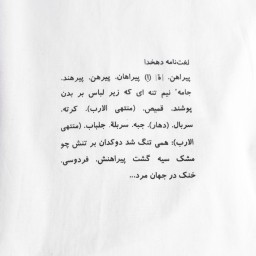 لغت‌نامه دهخدا
پیراهن. [هَ] (اِ) پیراهان. پیرهن. پیرهند.
جامهٔ نیم تنه ای که زیر لباس بر بدن
پوشند. قمیص. (منتهی الارب). کرته.
سربال. (دهار). جبه. سربلة. جلباب. (منتهی
الارب)؛ همی تنگ شد دوکدان بر تنش چو
مشک سیه گشت پیراهنش. فردوسی.
خنک در جهان مرد...